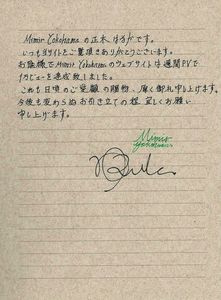 Mimir Yokohama の正木 はるかです。
いつも当サイトをご覧頂きありがとうございます。
お陰様で Mimir Yokohama のウェブサイトは 週間PVで
1万ビューを達成致しました。
これも日頃のご愛顧の賜物、厚く御礼申し上げます。
今後も変わらぬお引き立ての程 宜しくお願い
申し上げます。
Mimir
Yokohama